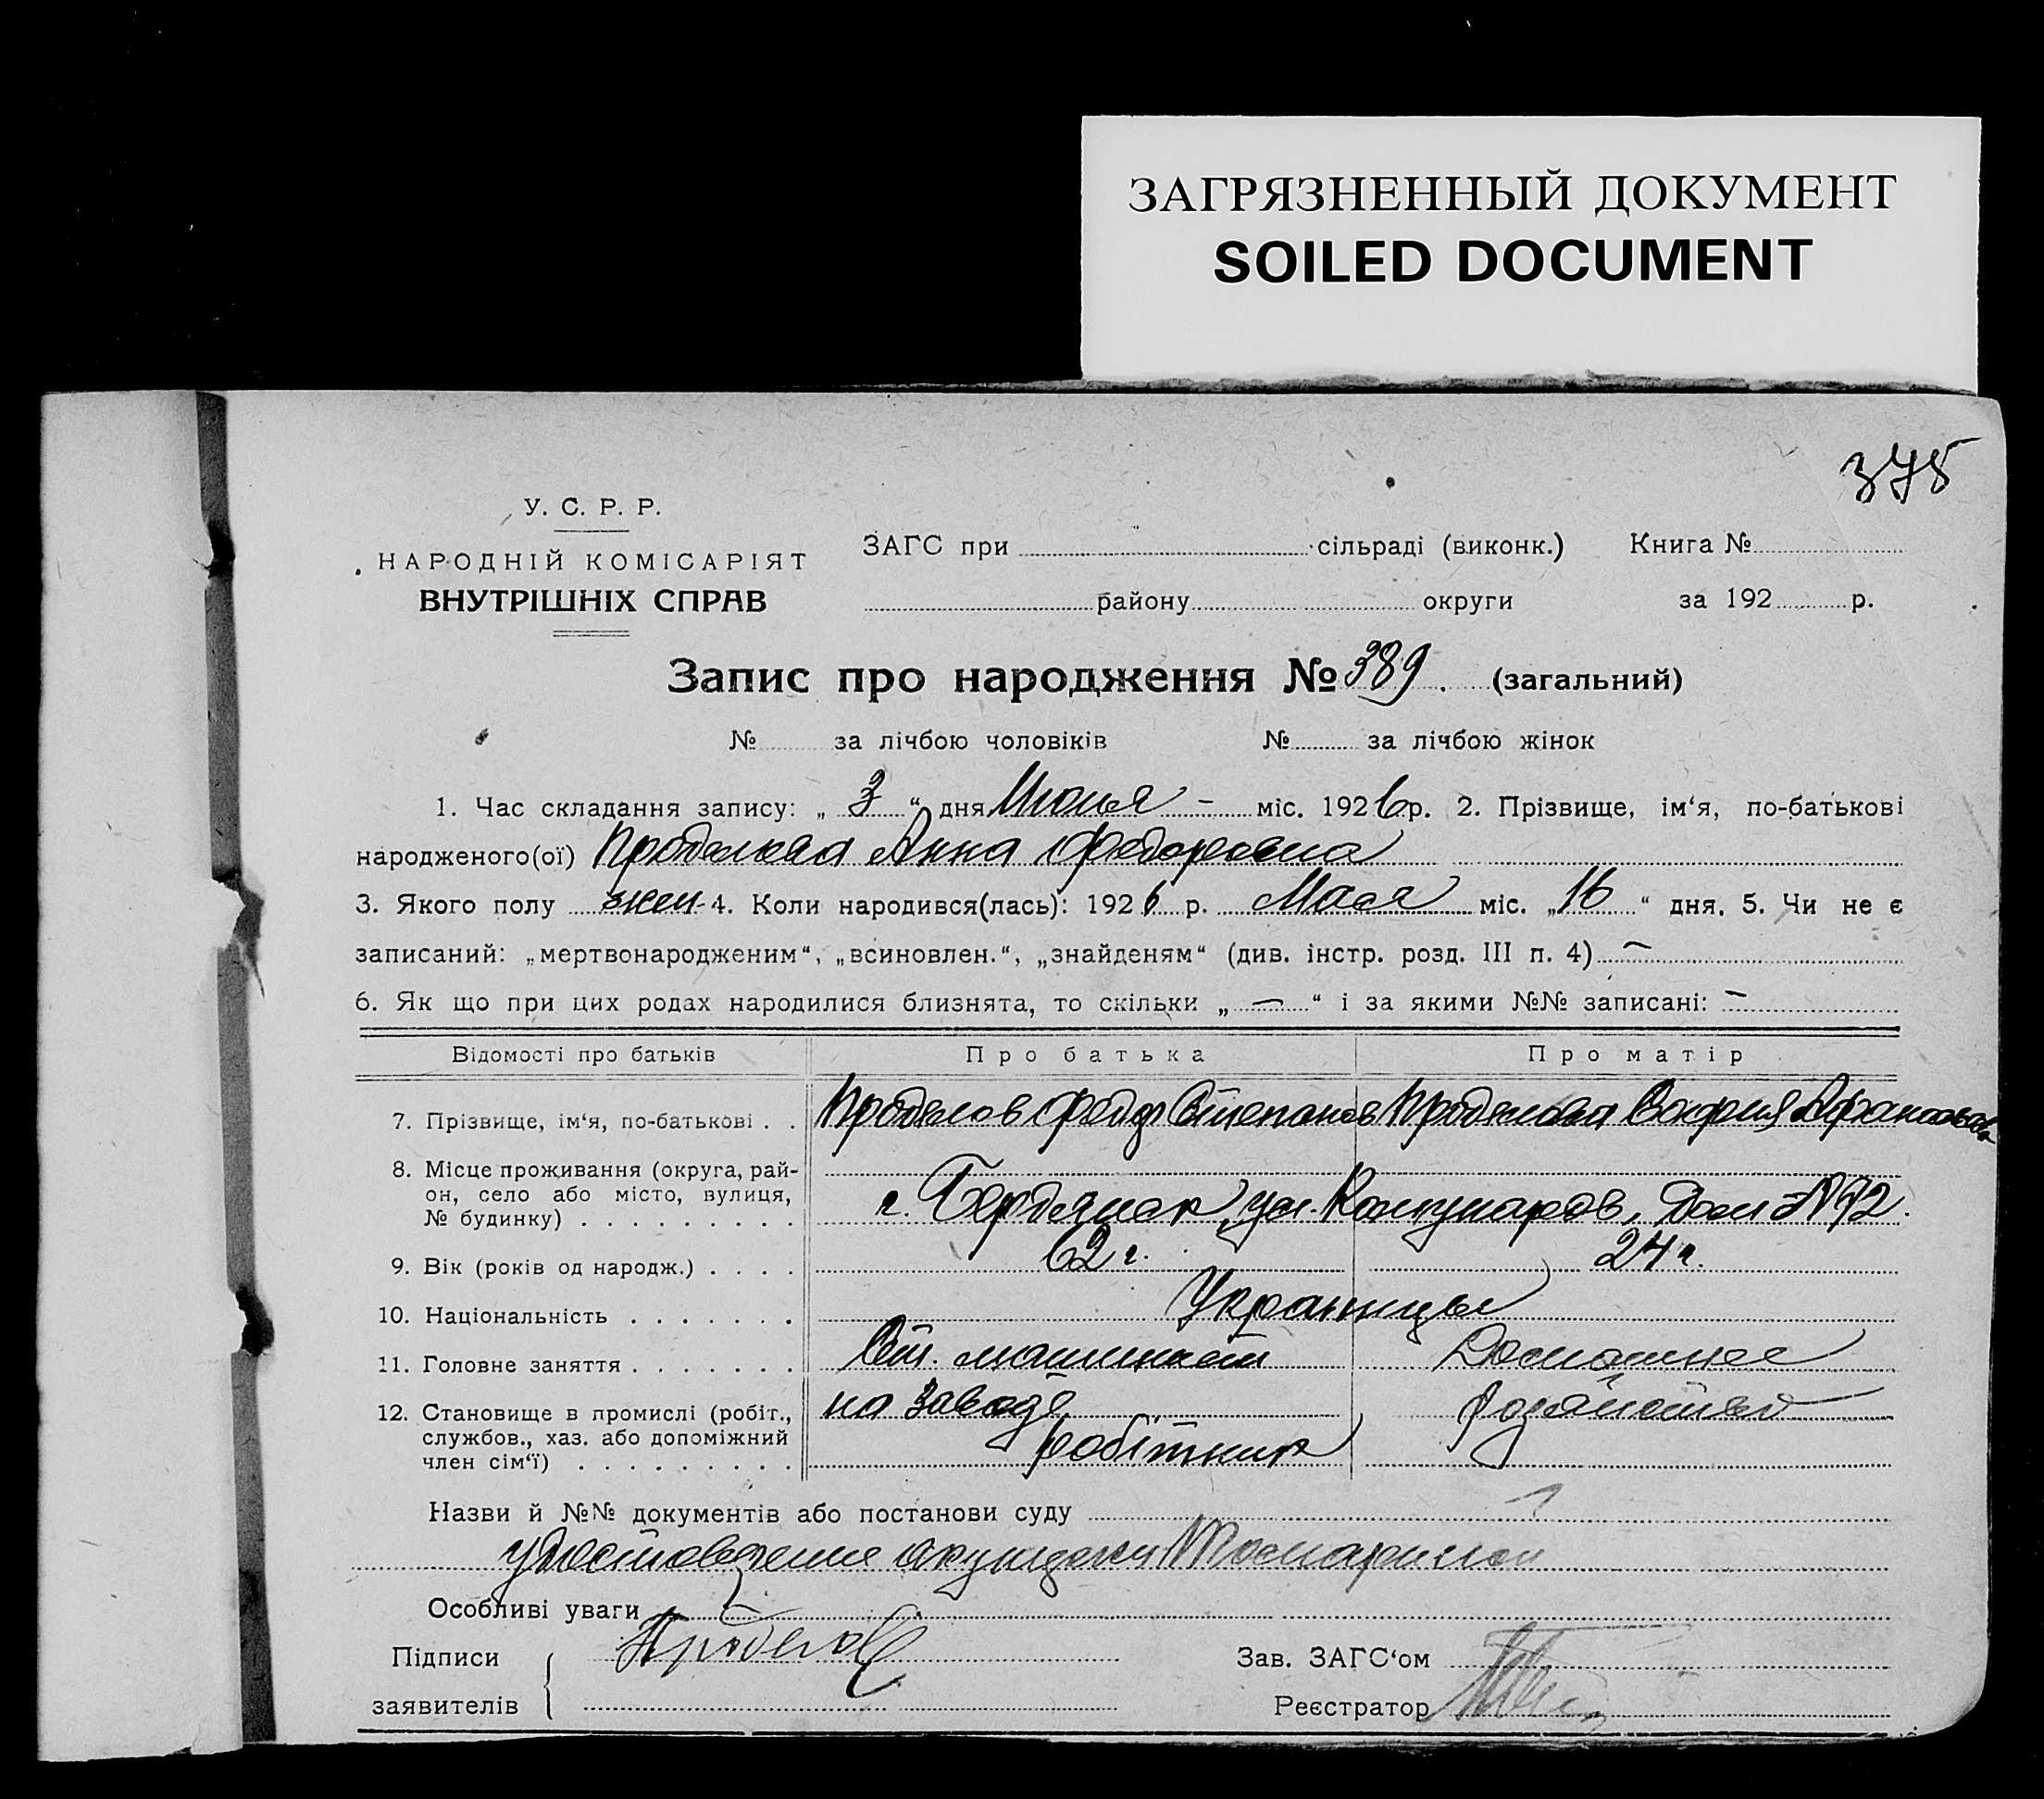 ЗАГРЯЗНЕННЫЙ ДОКУМЕНТ
SOILED DOCUMENT
375
У. С. Р. Р.
НАРОДНІЙ КОМІСАРІЯТ
ВНУТРІШНІХ СПРАВ
ЗАГС при сільраді (виконк.) Книга №
району округи за 192 р.
Запис про народження № 389. (загальний)
№ за лічбою чоловіків № за лічбою жінок
1. Час складання запису: „ 3 “ дня Июня - міс. 1926 р. 2. Прізвище, ім‘я, по-батькові
народженого(ої) Проделова Анна Федоровна
3. Якого полу жен- 4. Коли народився(лась): 1926 р. Мая міс. „16“ дня. 5. Чи не є
записаний: „мертвонародженим“, „всиновлен.“, „знайденям“ (див. інстр. розд. III п. 4) —
6. Як що при цих родах народилися близнята, то скільки „ — “ і за якими №№ записані: —
Відомості про батьків Про батька Про матір
7. Прізвище, ім‘я, по-батькові . . Проделов Федор Степанов Проделова София
8. Місце проживання (округа, рай-
он, село або місто, вулиця,
№ будинку) . . . . . . . . . г. Бердянск ул. Комунаров, дом №
9. Вік (років од народж.) . . . . 62 г. 24 г.
10. Національність . . . . . . . Украинцы
11. Головне заняття . . . . . . . машинист Домашнее
12. Становище в промислі (робіт.,
службов., хаз. або допоміжний
член сім‘ї) . . . . . . . . . на заводе робітник хозяйство
Назви й №№ документів або постанови суду
удостоверение акушерки
Особливі уваги
Підписи Проделов Зав. ЗАГС‘ом
заявителів Реєстратор